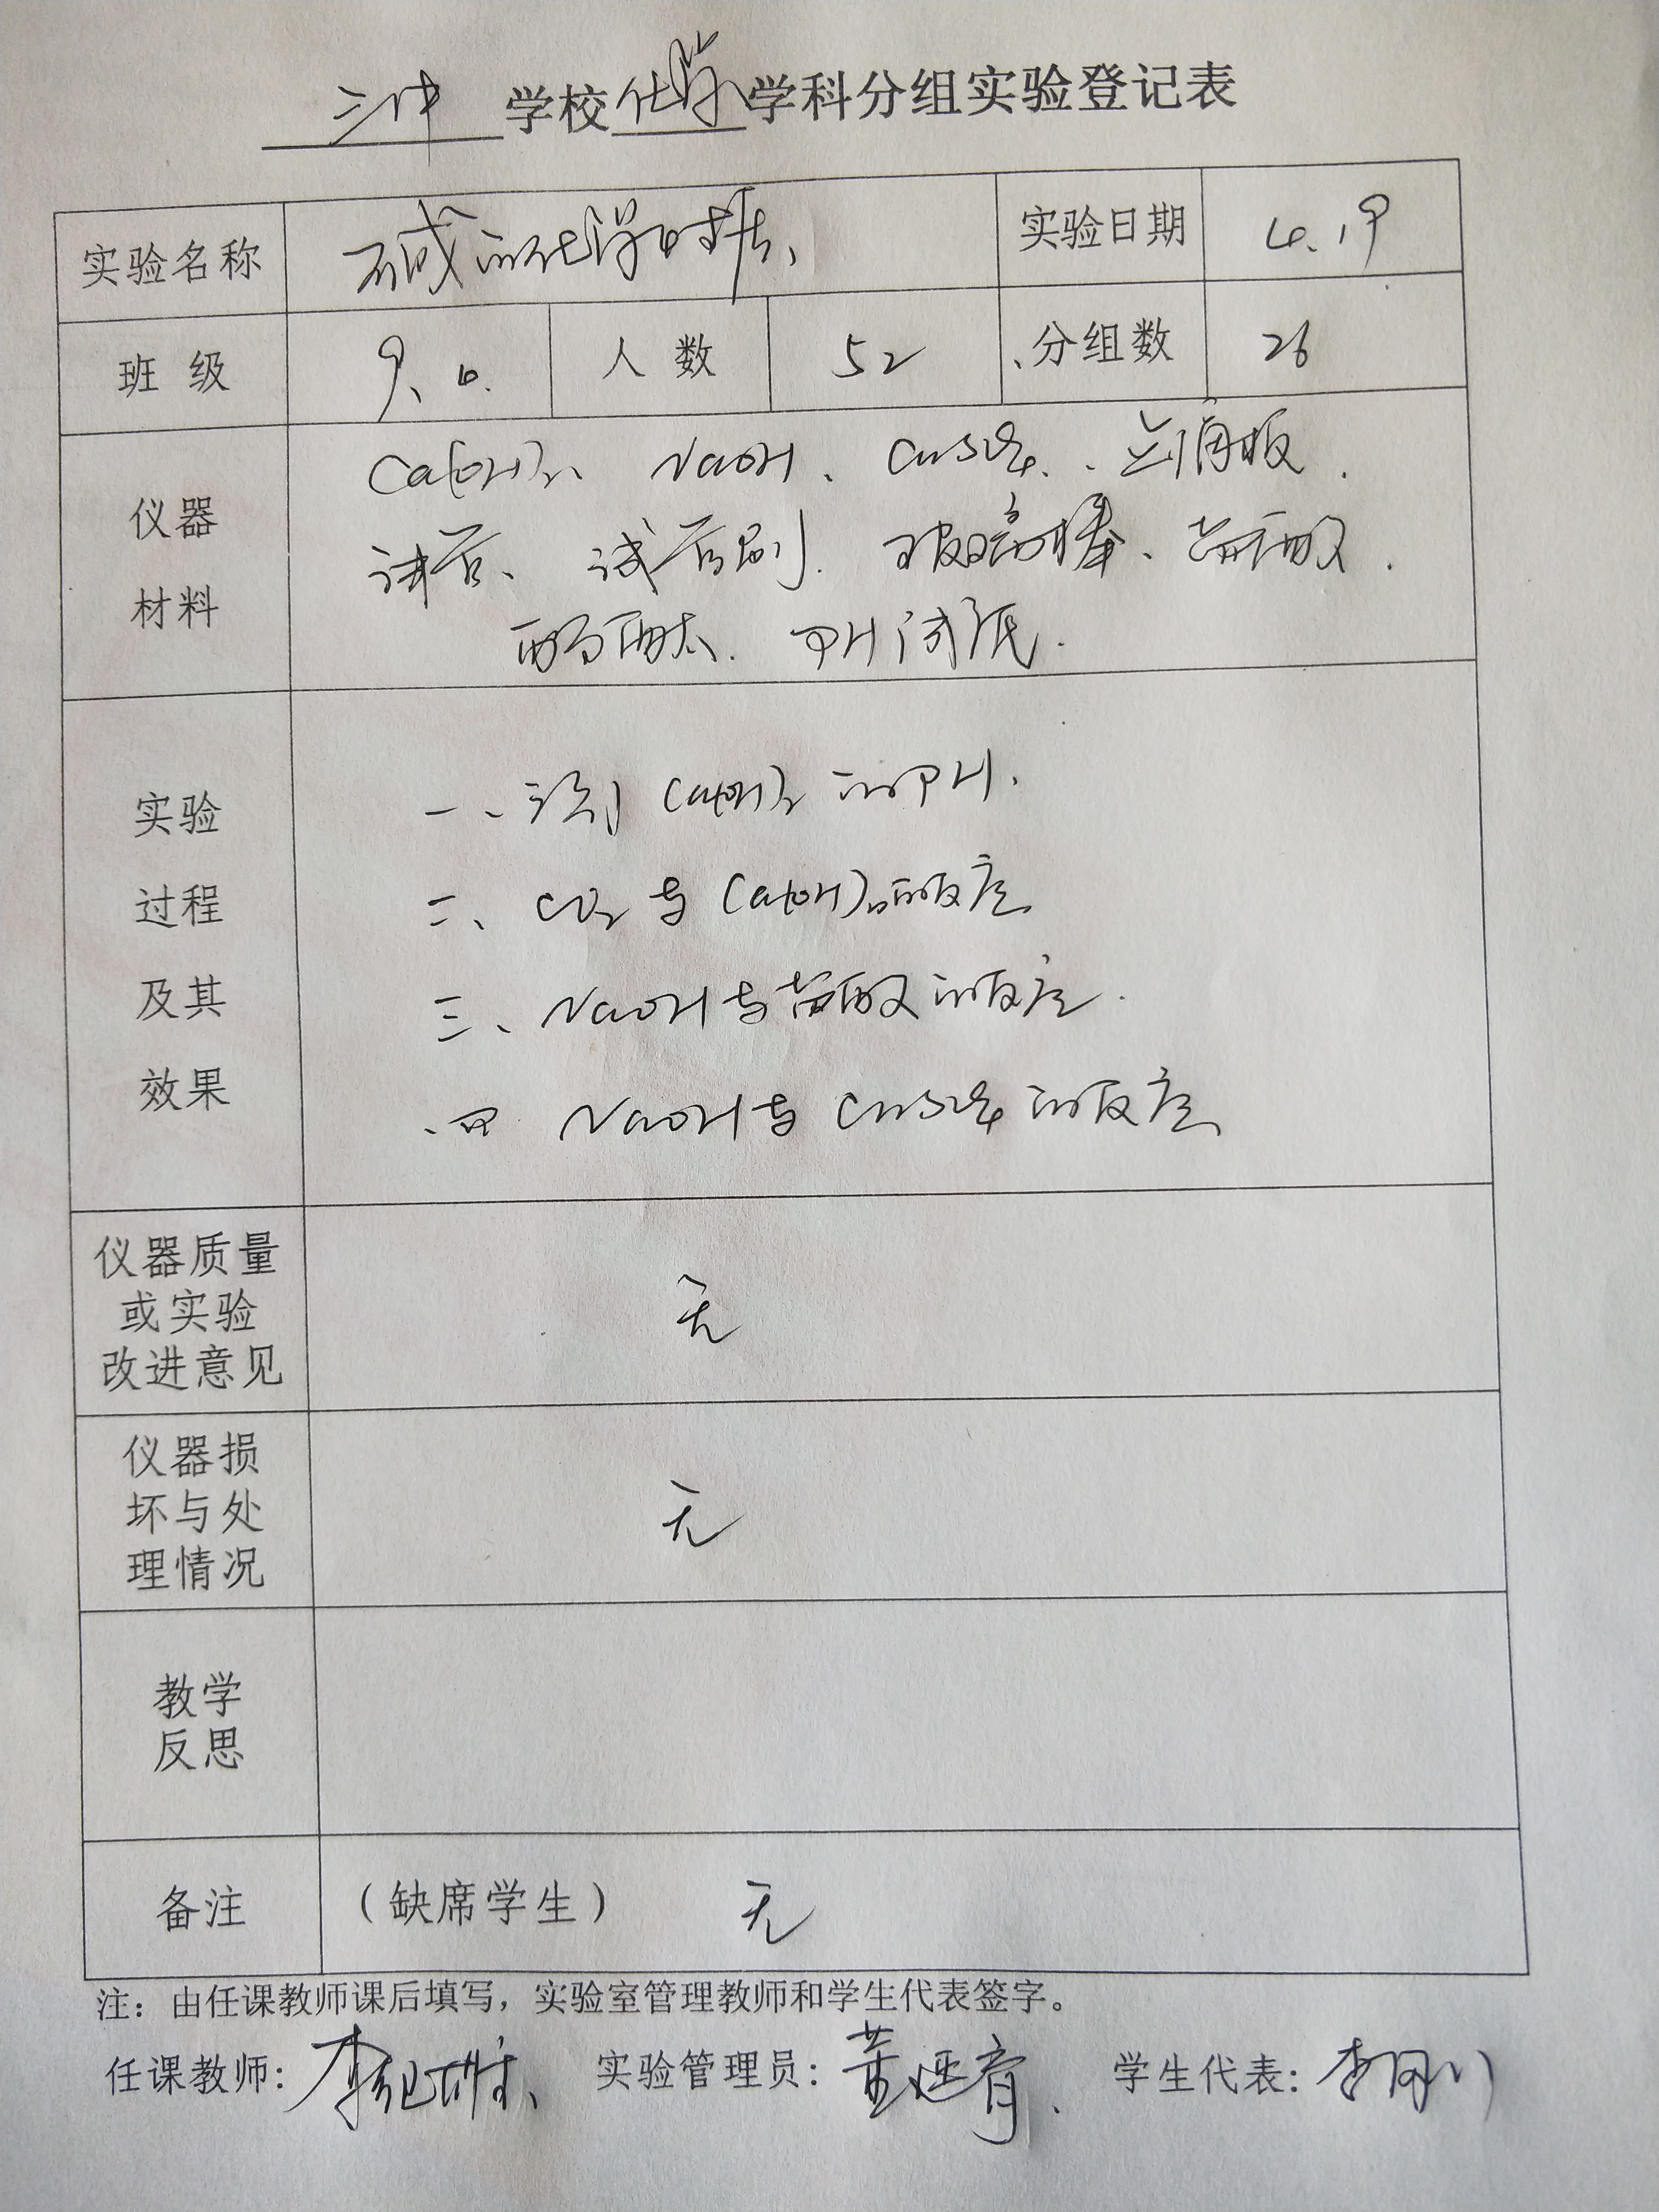 三中 学校 化学 学科分组实验登记表
实验名称 碱的化学性质、 实验日期 4.19
班 级 9、6. 人 数 52 分组数 26
仪器
材料
Ca(OH)2、 NaOH、 CuSO4、 点滴板.
试管、 试管刷. 玻璃棒、 盐酸.
酚酞. PH试纸.
实验
过程
及其
效果
一、测 Ca(OH)2 的PH.
二、 CO2 与 Ca(OH)2的反应
三、 NaOH与盐酸的反应.
四 NaOH与 CuSO4 的反应
仪器质量
或实验
改进意见
无
仪器损
坏与处
理情况
无
教学
反思
备注 （缺席学生） 无
注：由任课教师课后填写，实验室管理教师和学生代表签字。
任课教师: 李纪雄、 实验管理员: 黄延育、 学生代表: 李